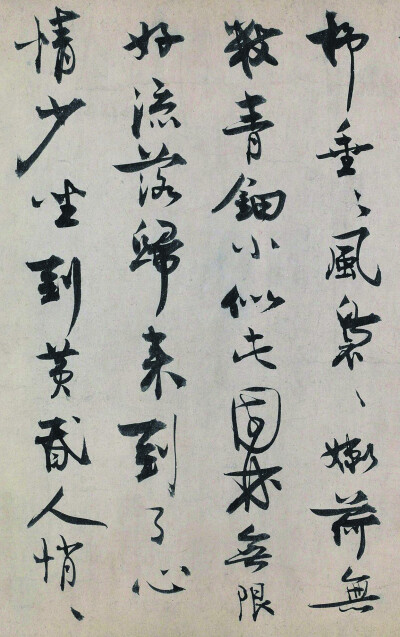 柳垂〻風裊〻嫩荷無
數青鈿小似此園林無限
好流落歸來到了心
情少坐到黃昏人悄〻